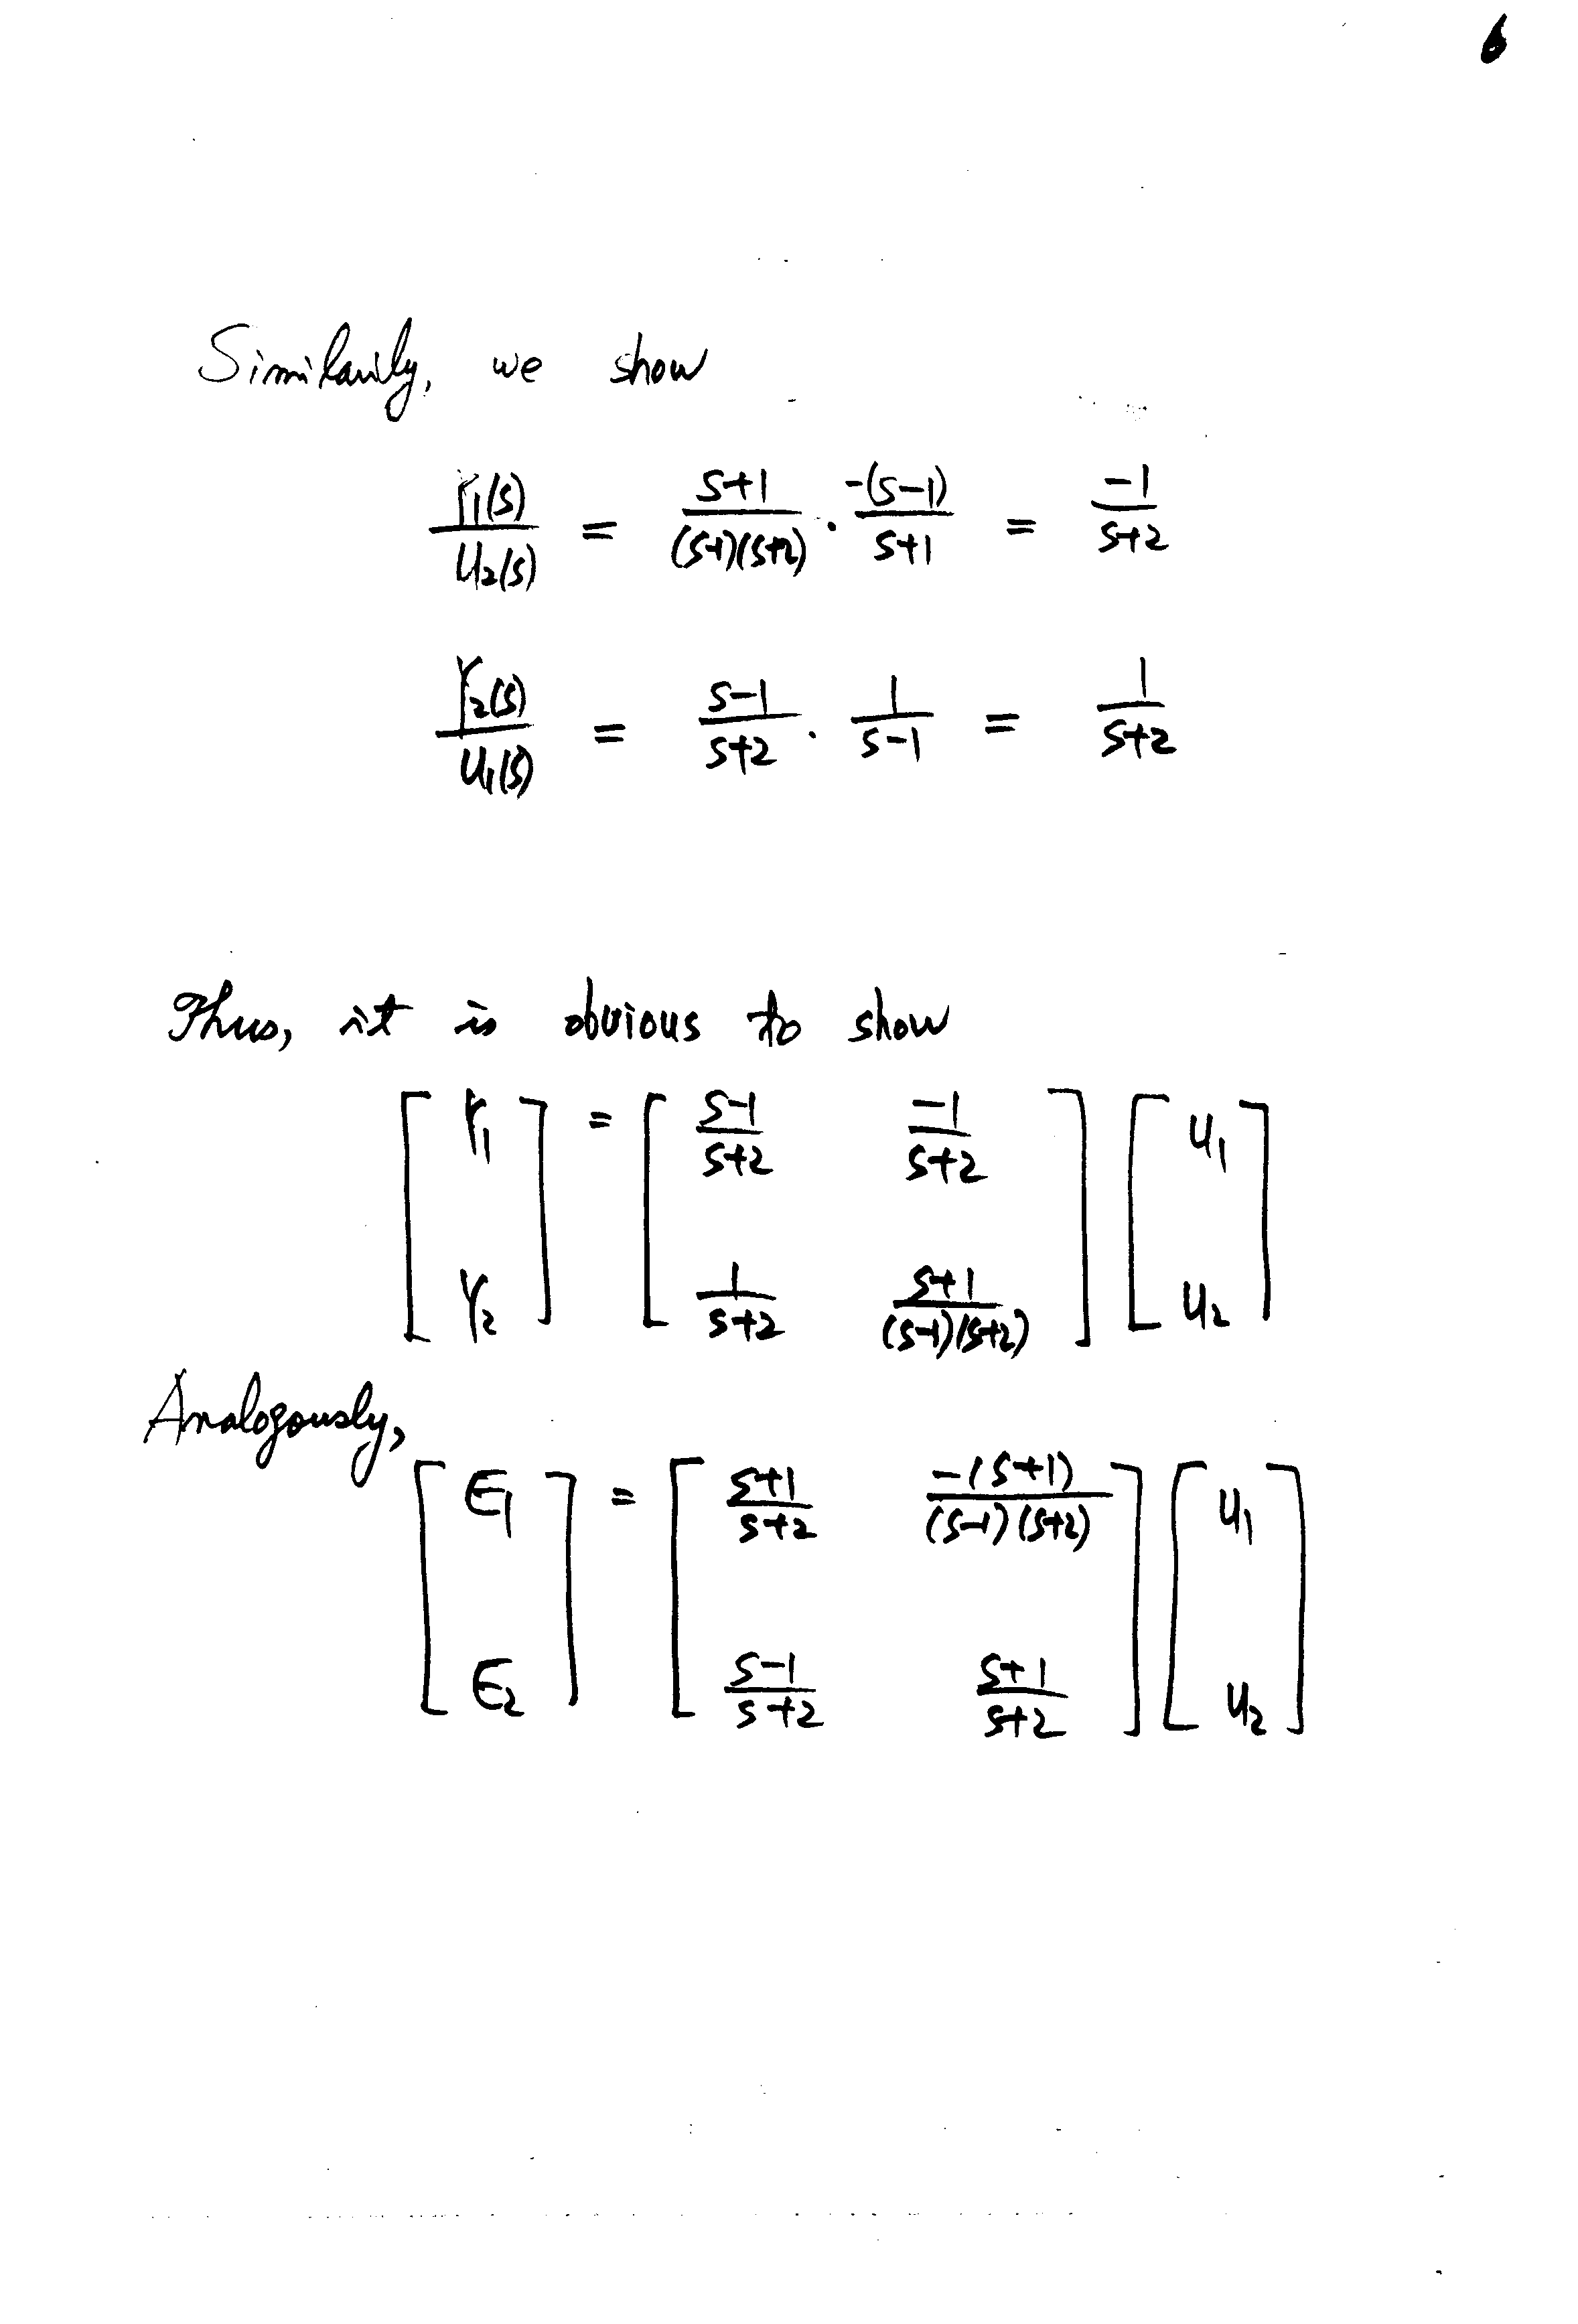 6
Similarily, we show
Y₁(s)/U₂(s) = (s+1)/((s-1)(s+2)) · (-(s-1))/(s+1) = -1/(s+2)
Y₂(s)/U₁(s) = (s-1)/(s+2) · 1/(s-1) = 1/(s+2)
Thus, it is obvious to show
[Y₁; Y₂] = [(s-1)/(s+2), -1/(s+2); 1/(s+2), (s+1)/((s-1)(s+2))] [U₁; U₂]
Analogously,
[E₁; E₂] = [(s+1)/(s+2), -(s+1)/((s-1)(s+2)); (s-1)/(s+2), (s+1)/(s+2)] [U₁; U₂]